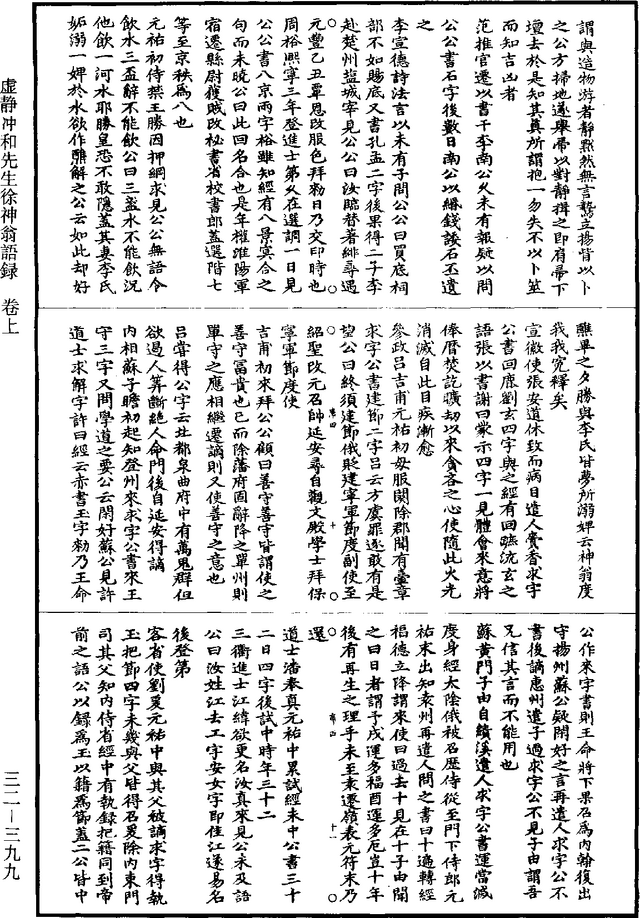 謂與造物游者靜默然無言驚立揚背以卜
之公方掃地遂舉帚以對靜揖之即有帚下
壇去於是知其真所謂抱一勿失不以卜筮
而知吉凶者
范推官遷以書干李南公久未有報疑以問
公公書石字後數日南公以緡錢諉石丞遺
之
李宣德詩法言以未有子問公公曰買底祠
部不如賜底又書孔孟二字後果得二子李
赴楚州鹽城宰見公公曰汝臨替著緋尋遇
元豐乙丑覃恩改服色拜勑日乃交印時也
周裕熙寧三年登進士第久在選調一日見
公公書八京兩字裕雖知經有八景冥合之
句而未曉公曰此回名合也是年權淮陽軍
宿遷縣尉獲賊改秘書省校書郎蓋選階七
等至京秩為八也
元祐初侍禁王勝因押綱求見公公無語令
飲水三盃辭不能飲公曰三盃水不能飲況
他飲一河水耶勝皇恐不敢隱蓋其妻李氏
妬溺一婢於水欲作醮解之公云如此却好
醮畢之夕勝與李氏皆夢所溺婢云神翁度
我我冤釋矣
宣徽使張安道休致而病目遣人賫香求字
公書回鹿劉玄四字與之經有回飈流玄之
語張以書謝曰蒙示四字一見體會來意將
俸曆焚訖曠劫以來貪吝之心使隨此火光
消滅自此目疾漸愈
參政呂吉甫元祐初母服闋除郡聞有臺章
求字公書建節二字呂云方虞罪遂敢有是
望公曰終須建節俄貶建寧軍節度副使至
紹聖改元召帥延安尋自觀文殿學士拜保
寧軍節度使
吉甫初來拜公公顧曰善守善守皆謂使之
善守富貴也已而除藩府固辭降之單州則
單守之應相繼遷謫則又使善守之意也
呂嘗得公字云北都泉曲府中有萬鬼群但
欲遏人筭斷絕人命門後自延安得謫
內相蘇子瞻初起知登州來求字公書來王
守三字又問學道之要公云閑好蘇公見許
道士求解字許曰經云赤書玉字勑乃王命
公作來字書則王命將下果召為內翰復出
守揚州蘇公疑閑好之言再遣人求字公不
書後謫惠州遣子過求字公不見子由謂吾
兄信其言而不能用也
蘇黃門子由自績溪遣人求字公書運當滅
度身經太陰俄被召歷侍從至門下侍郎元
祐末出知袁州再遣人問之書曰十遍轉經
福德立降謂來使曰過去十見在十子由聞
之曰日者謂予戌運多福酉運多厄豈十年
後有再生之理乎未至袁遷嶺表元符末乃
還
道士潘奉真元祐中累試經未中公書三十
二日四字後試中時年三十二
三衢進士江緯欲更名汝真來見公未及語
公曰汝姓江去工字安女字即佳江遂易名
後登第
容省使劉瑗元祐中與其父被謫求字得執
玉把節四字未幾與父皆得召瑗除內東門
司其父知內侍省經中有執録把籍同到帝
前之語公以録為玉以籍為節蓋二公皆中
虛靜冲和先生徐神翁語録 卷上
三二—三九九